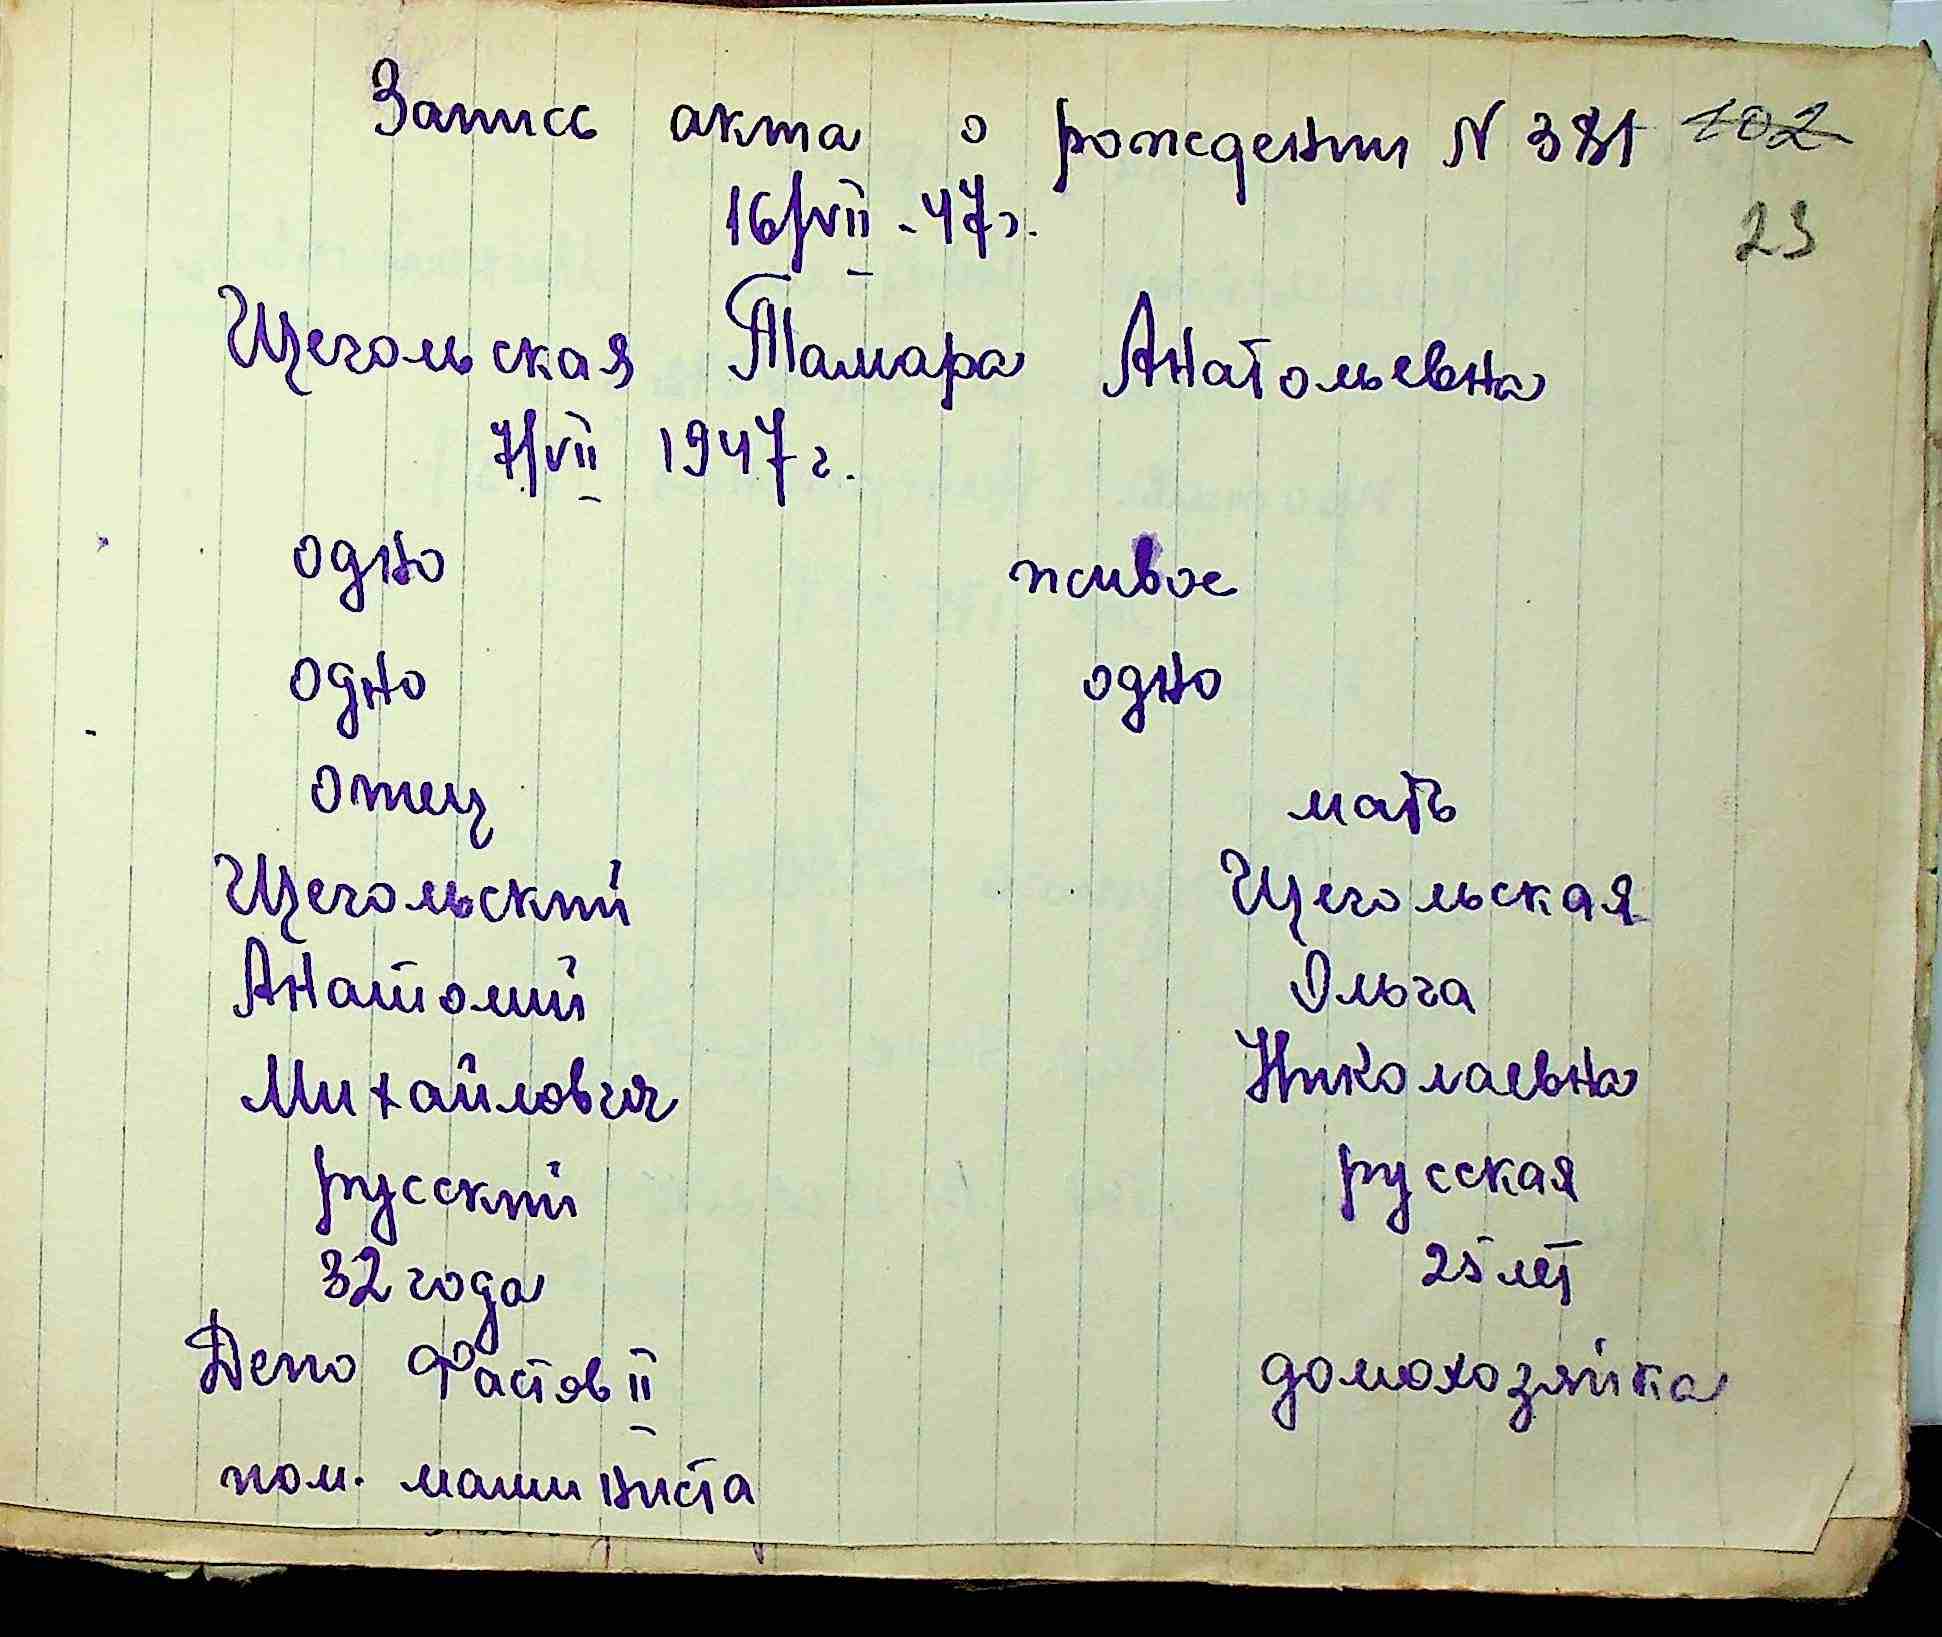 Запись акта о рождении N 381 102
16/VII - 47 г.
23
Щегольская Тамара Анатольевна
7/VII 1947 г.
одно живое
одно одно
отец мать
Щегольский Щегольская
Анатолий Ольга
Михайлович Николаевна
русский русская
32 года 25 лет
Депо Фастов II домохозяйка
пом. машиниста